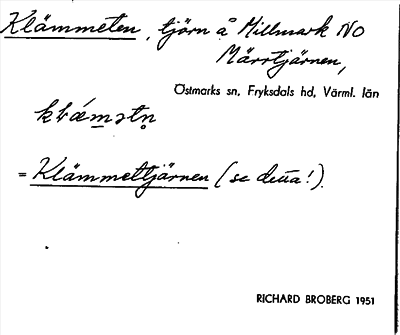 Klämmeten, tjörn å Millmark NO
Märrtjärnen,
Östmarks sn, Fryksdals hd, Värml. län
= Klämmettjärnen (se detta!).
RICHARD BROBERG 1951